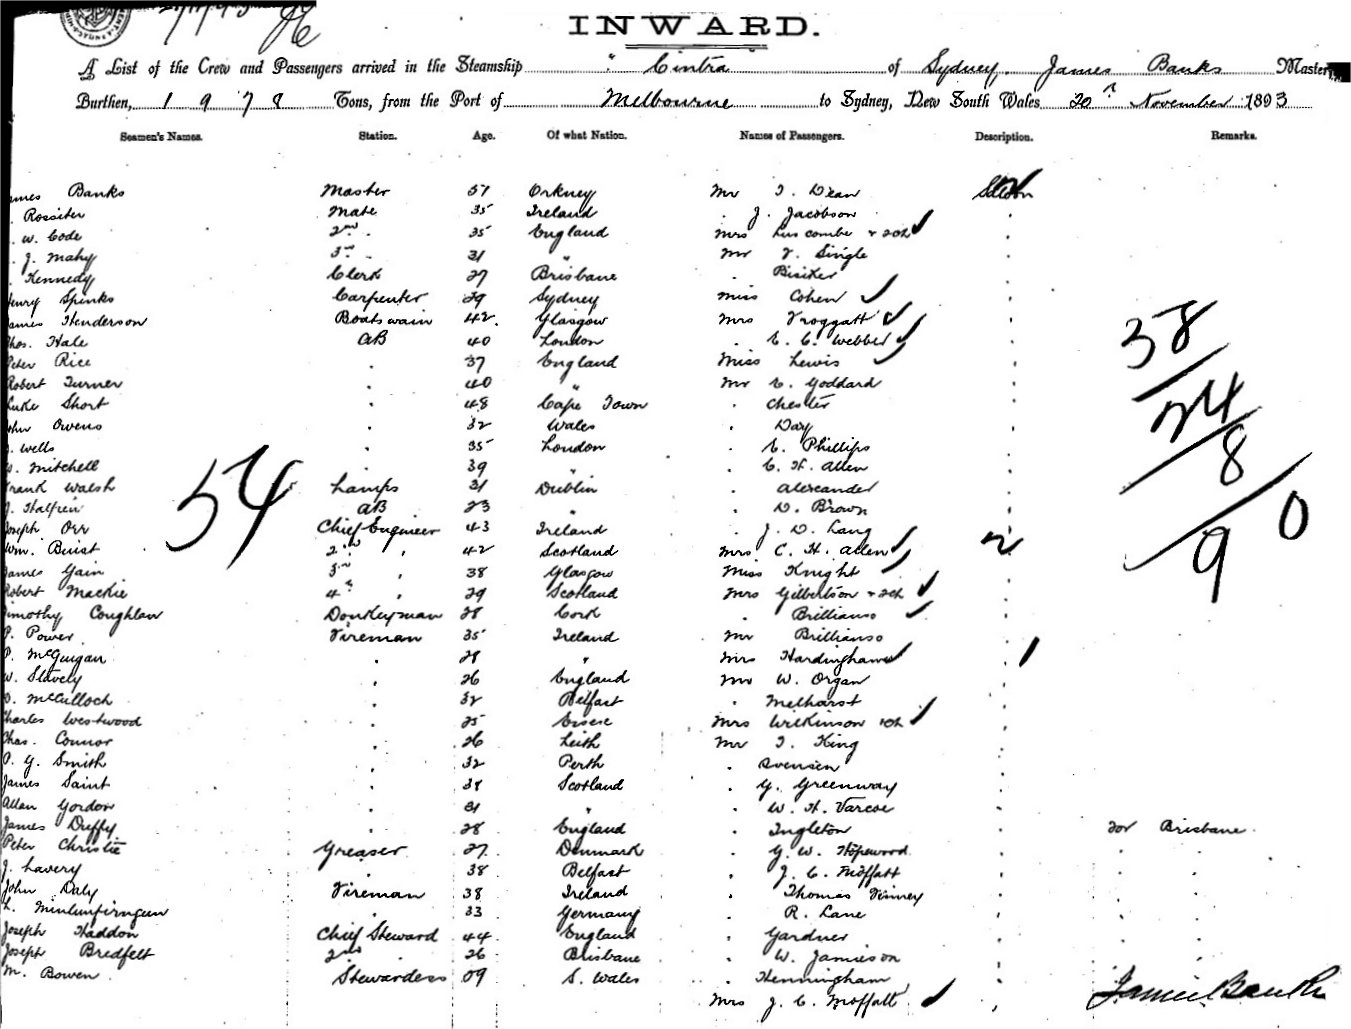 INWARD.
A List of the Crew and Passengers arrived in the Steamship "Cintra" of Sydney, James Banks Master,
Burthen, 1978 Tons, from the Port of Melbourne to Sydney, New South Wales 20th November 1893
Seamen's Names. Station. Age. Of what Nation. Names of Passengers. Description. Remarks.
ames Banks Master 51 Orkney Mr T. Dean Saloon
. Rossiter Mate 35 Ireland . J. Jacobson .
. W. Code 2nd . 35 England Mrs Luscombe + 2ch .
. J. Mahy 3rd . 31 " Mr V. Single .
. Kennedy Clerk 27 Brisbane . Bisiker .
Henry Spinks Carpenter 29 Sydney Miss Cohen .
James Henderson Boatswain 42 Glasgow Mrs Froggatt .
Thos. Hale AB 40 London . E. C. Webber .
Peter Rice . 37 England Miss Lewis .
38
Robert Turner . 40 " Mr E. Goddard .
Luke Short . 48 Cape Town . Chester .
24
John Owens . 32 Wales . Day .
. Wells . 35 London . E. Phillips .
8
. Mitchell . 39 " . C. H. Allen .
Frank Walsh Lamps 31 Dublin . Alexander .
54
J. Halpin AB 23 " . D. Brown .
90
Joseph Orr Chief Engineer 43 Ireland . J. D. Lang .
Wm. Buist 2nd , 42 Scotland Mrs C. H. Allen
James Gain 3rd , 38 Glasgow Miss Knight .
Robert Mackie 4th , 29 Scotland Mrs Gilbertson + 2ch .
Timothy Coughlan Donkeyman 28 Cork . Brillianso .
P. Power Fireman 35 Ireland Mr Brillianso .
P. McGuigan . 28 " Mrs Hardingham .
W. Stavely . 26 England Mr W. Organ .
D. McCulloch . 32 Belfast . Melhorst .
Charles Westwood . 25 Essex Mrs Wilkinson 1ch .
Chas. Connor . 26 Leith Mr T. King .
P. G. Smith . 32 Perth . Svensen .
James Saint . 38 Scotland . G. Greenway .
Allan Gordon . 31 " . W. H. Varcoe .
James Duffy . 28 England . Ingleton . For Brisbane
Peter Christie Greaser 27 Denmark . G. W. Hopewood . . .
J. Lavery . 38 Belfast . J. C. Moffatt . . .
John Daly Fireman 38 Ireland . Thomas Finney . . .
L. 33 Germany . R. Lane . . .
Joseph Haddon Chief Steward 44 England . Gardner . . .
Joseph Bredfelt 2nd . 26 Brisbane . W. Jamieson . . .
M. Bowen Stewardess 09 S. Wales . Henningham .
Mrs J. C. Moffatt
James Banks